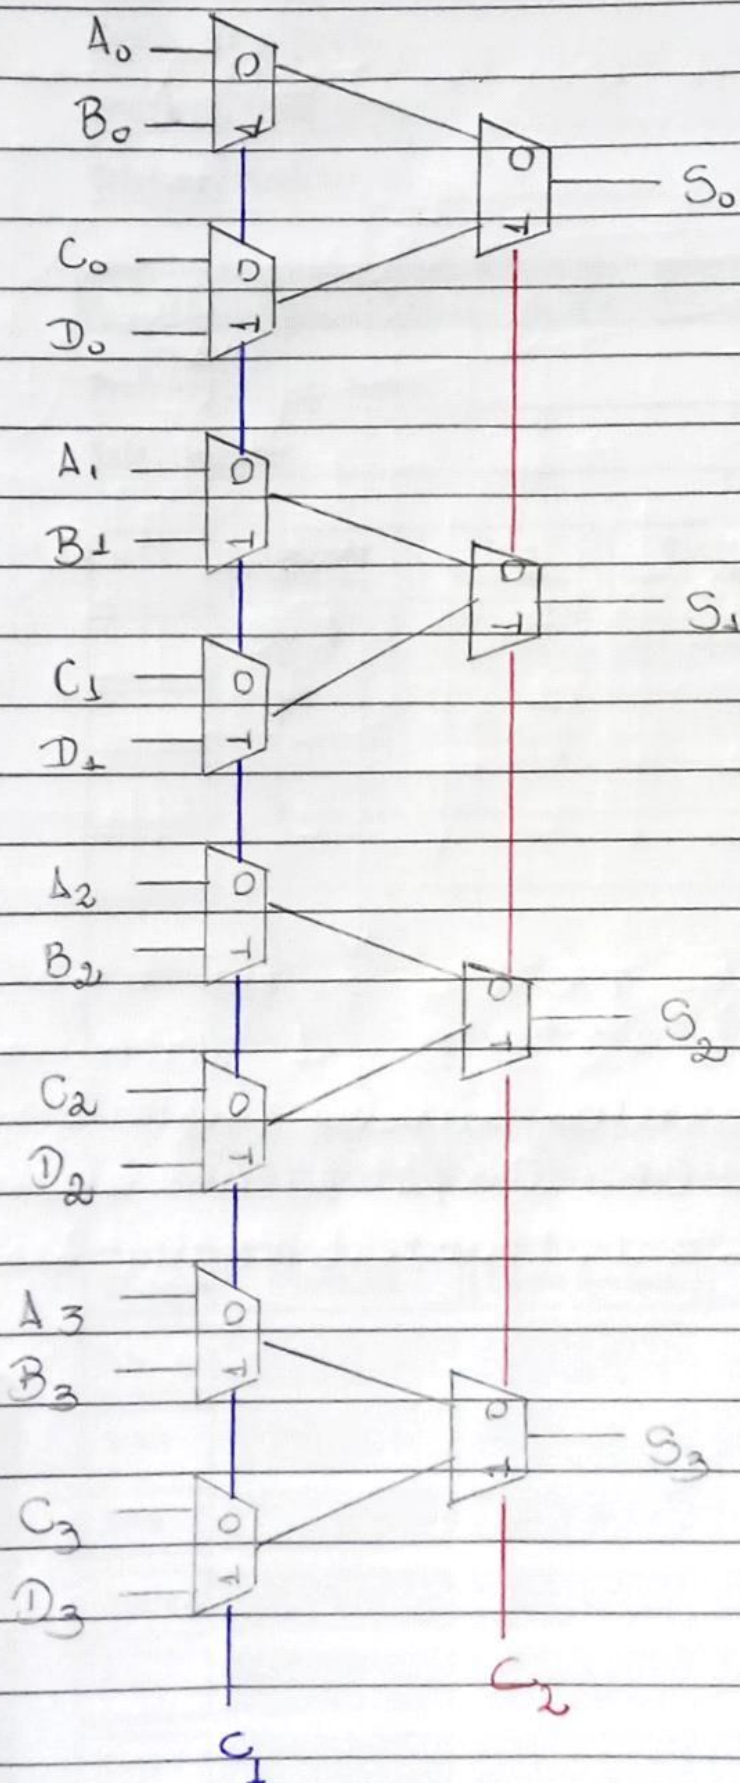 A0
0
B0
1
0
S0
1
C0
0
D0
1
A1
0
B1
1
0
S1
1
C1
0
D1
1
A2
0
B2
1
0
S2
1
C2
0
D2
1
A3
0
B3
1
0
S3
1
C3
0
D3
1
C2
C1